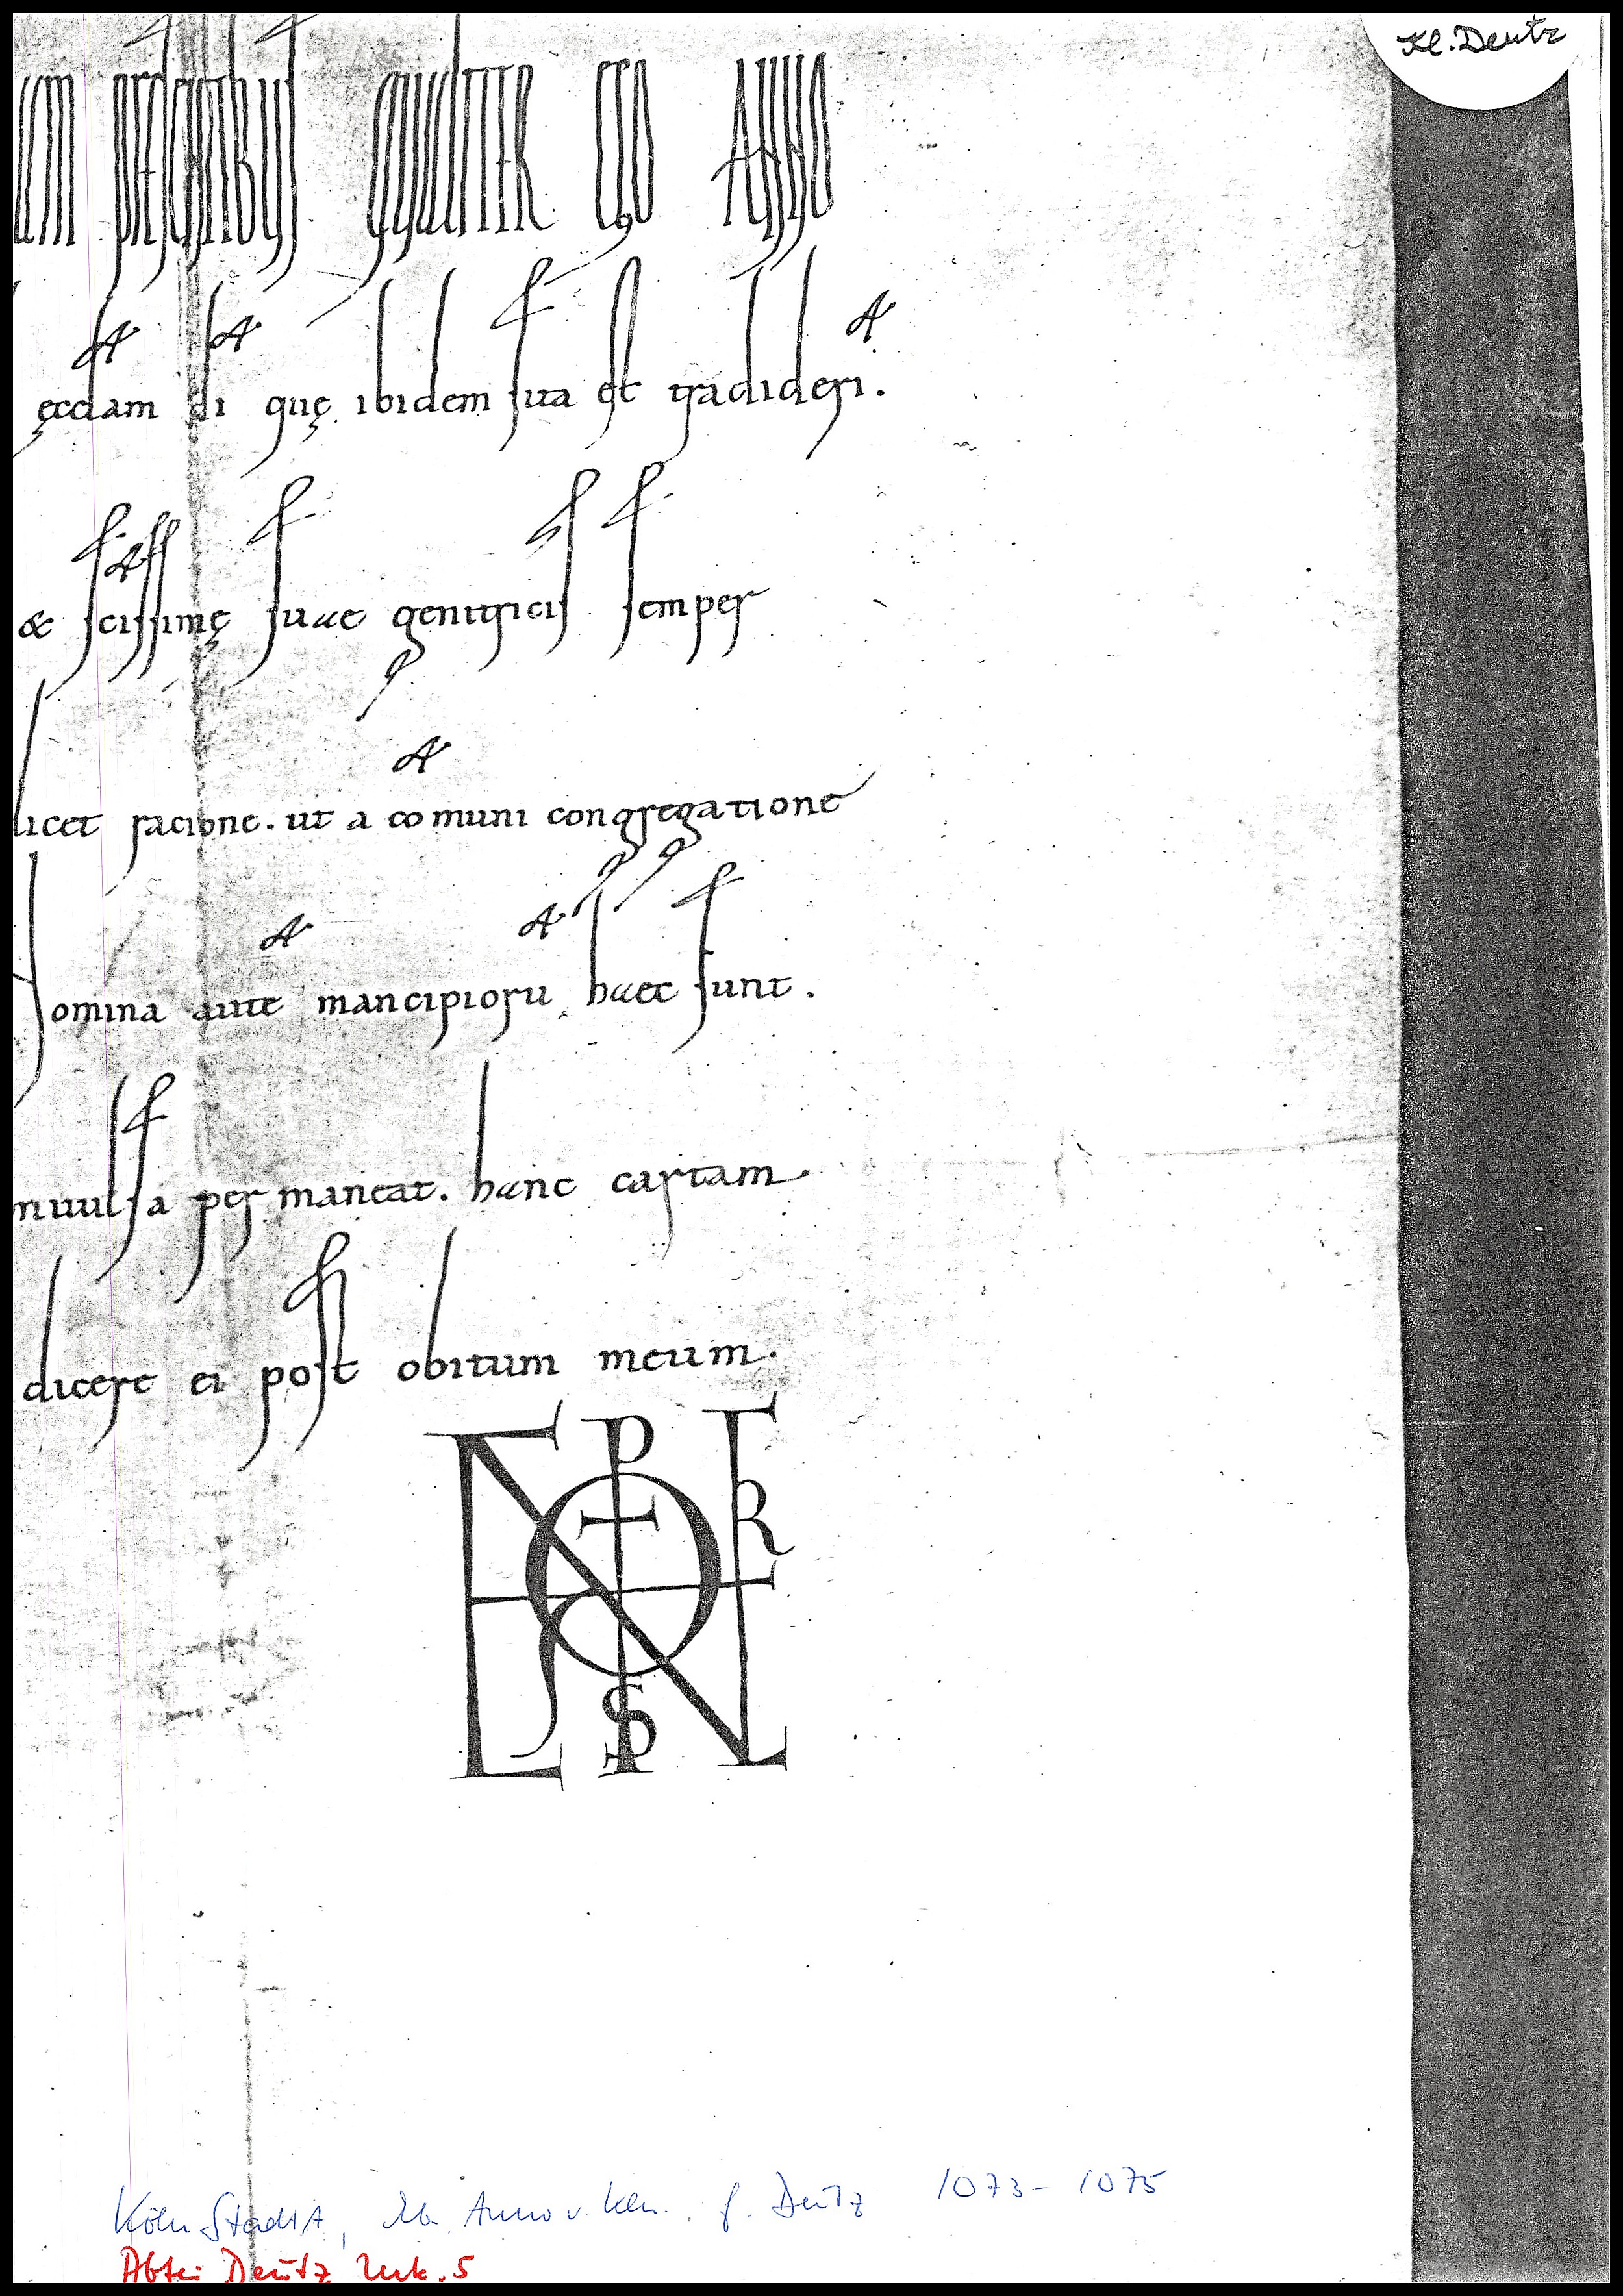 Kl. Deutz
um presentibus qualiter ego Anno
ęccłam di quę ibidem sita est tradideri.
& scissimę suae genitricis semper
licet racione. ut a comuni congregatione
omina aute mancipioru haec sunt.
nuulsa permaneat. hanc cartam
dicere ei post obitum meum.
Köln StadtA, Anno v. Kln. f. Deutz 1073-1075
Abtei Deutz Urk. 5